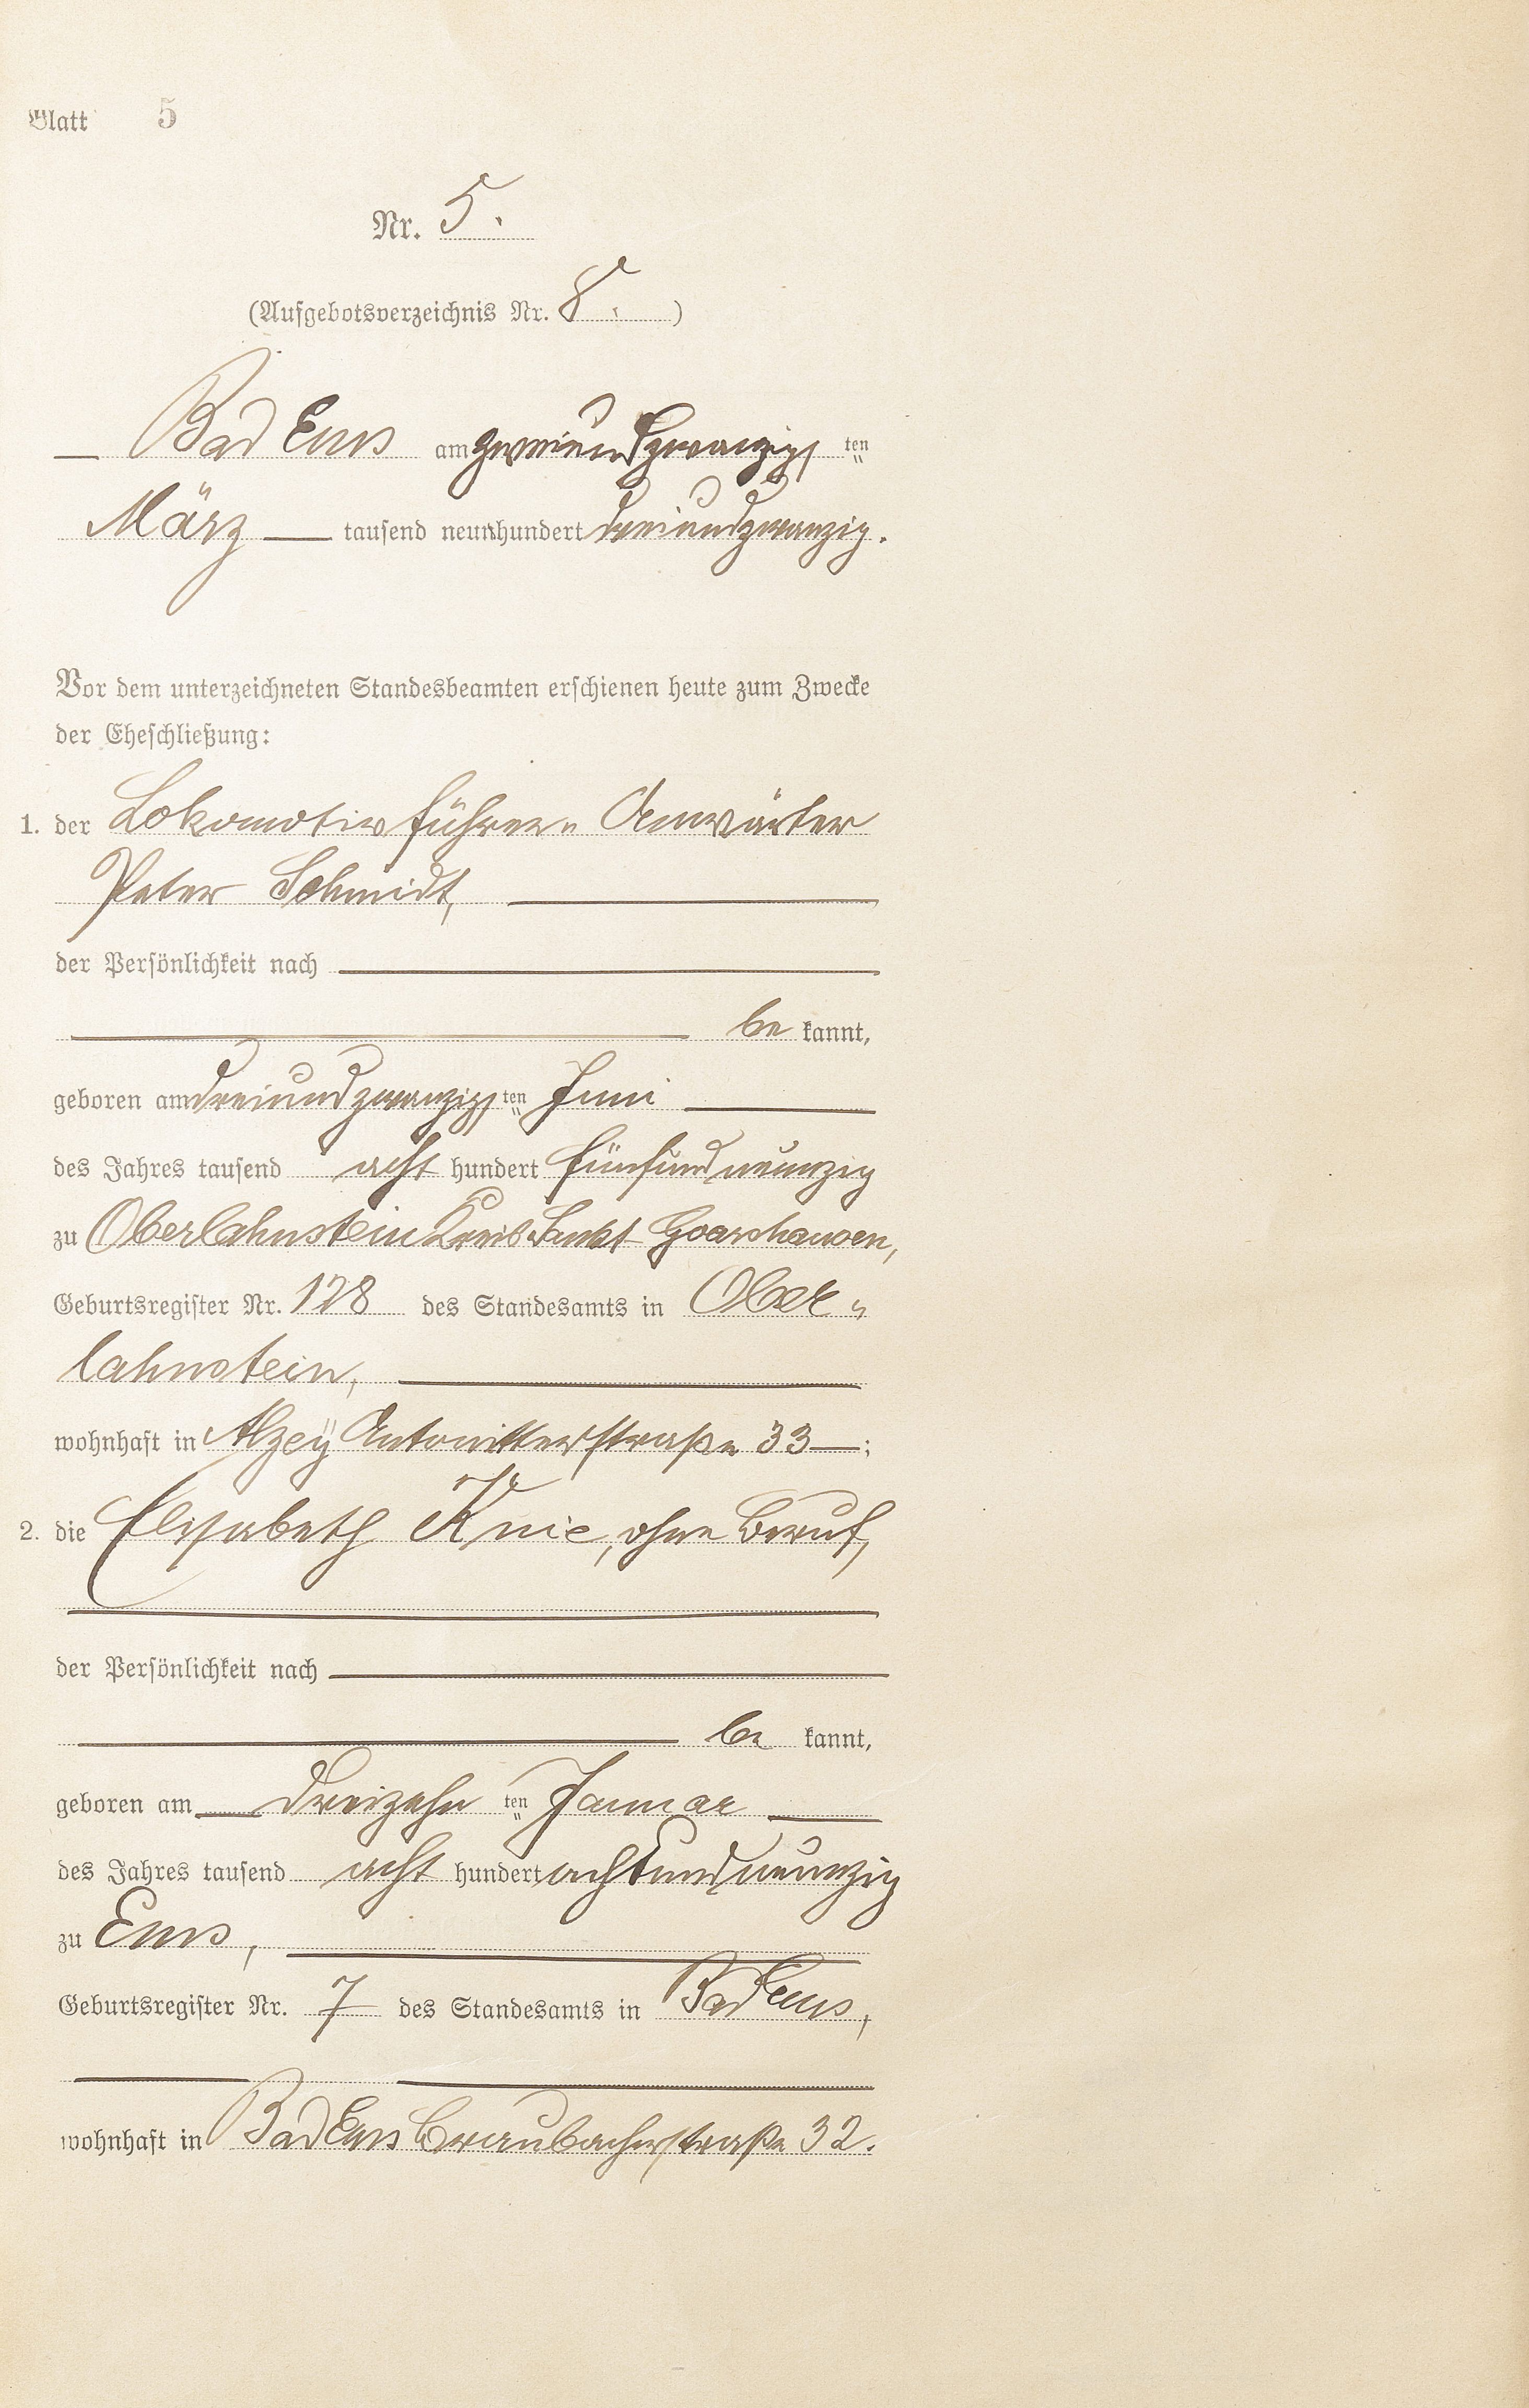 Blatt 5
Nr. 5.
(Aufgebotsverzeichnis Nr. 8.)
Bad Ems am zweiundzwanzigsten
März tausend neunhundert dreiundzwanzig.
Vor dem unterzeichneten Standesbeamten erschienen heute zum Zwecke
der Eheschließung:
1. der Lokomotivführer-Anwärter
Peter Schmidt,
der Persönlichkeit nach
bekannt,
geboren am dreiundzwanzigsten Juni
des Jahres tausend acht hundert fünfundneunzig
zu Oberlahnstein Kreis Sankt Goarshausen,
Geburtsregister Nr. 128 des Standesamts in Ober-
lahnstein,
wohnhaft in Alzey Antonitterstraße 33;
2. die Elisabeth Knie, ohne Beruf,
der Persönlichkeit nach
bekannt,
geboren am dreizehnten Januar
des Jahres tausend acht hundert achtundneunzig
zu Ems,
Geburtsregister Nr. 7 des Standesamts in Bad Ems,
wohnhaft in Bad Ems Braubacherstraße 32.